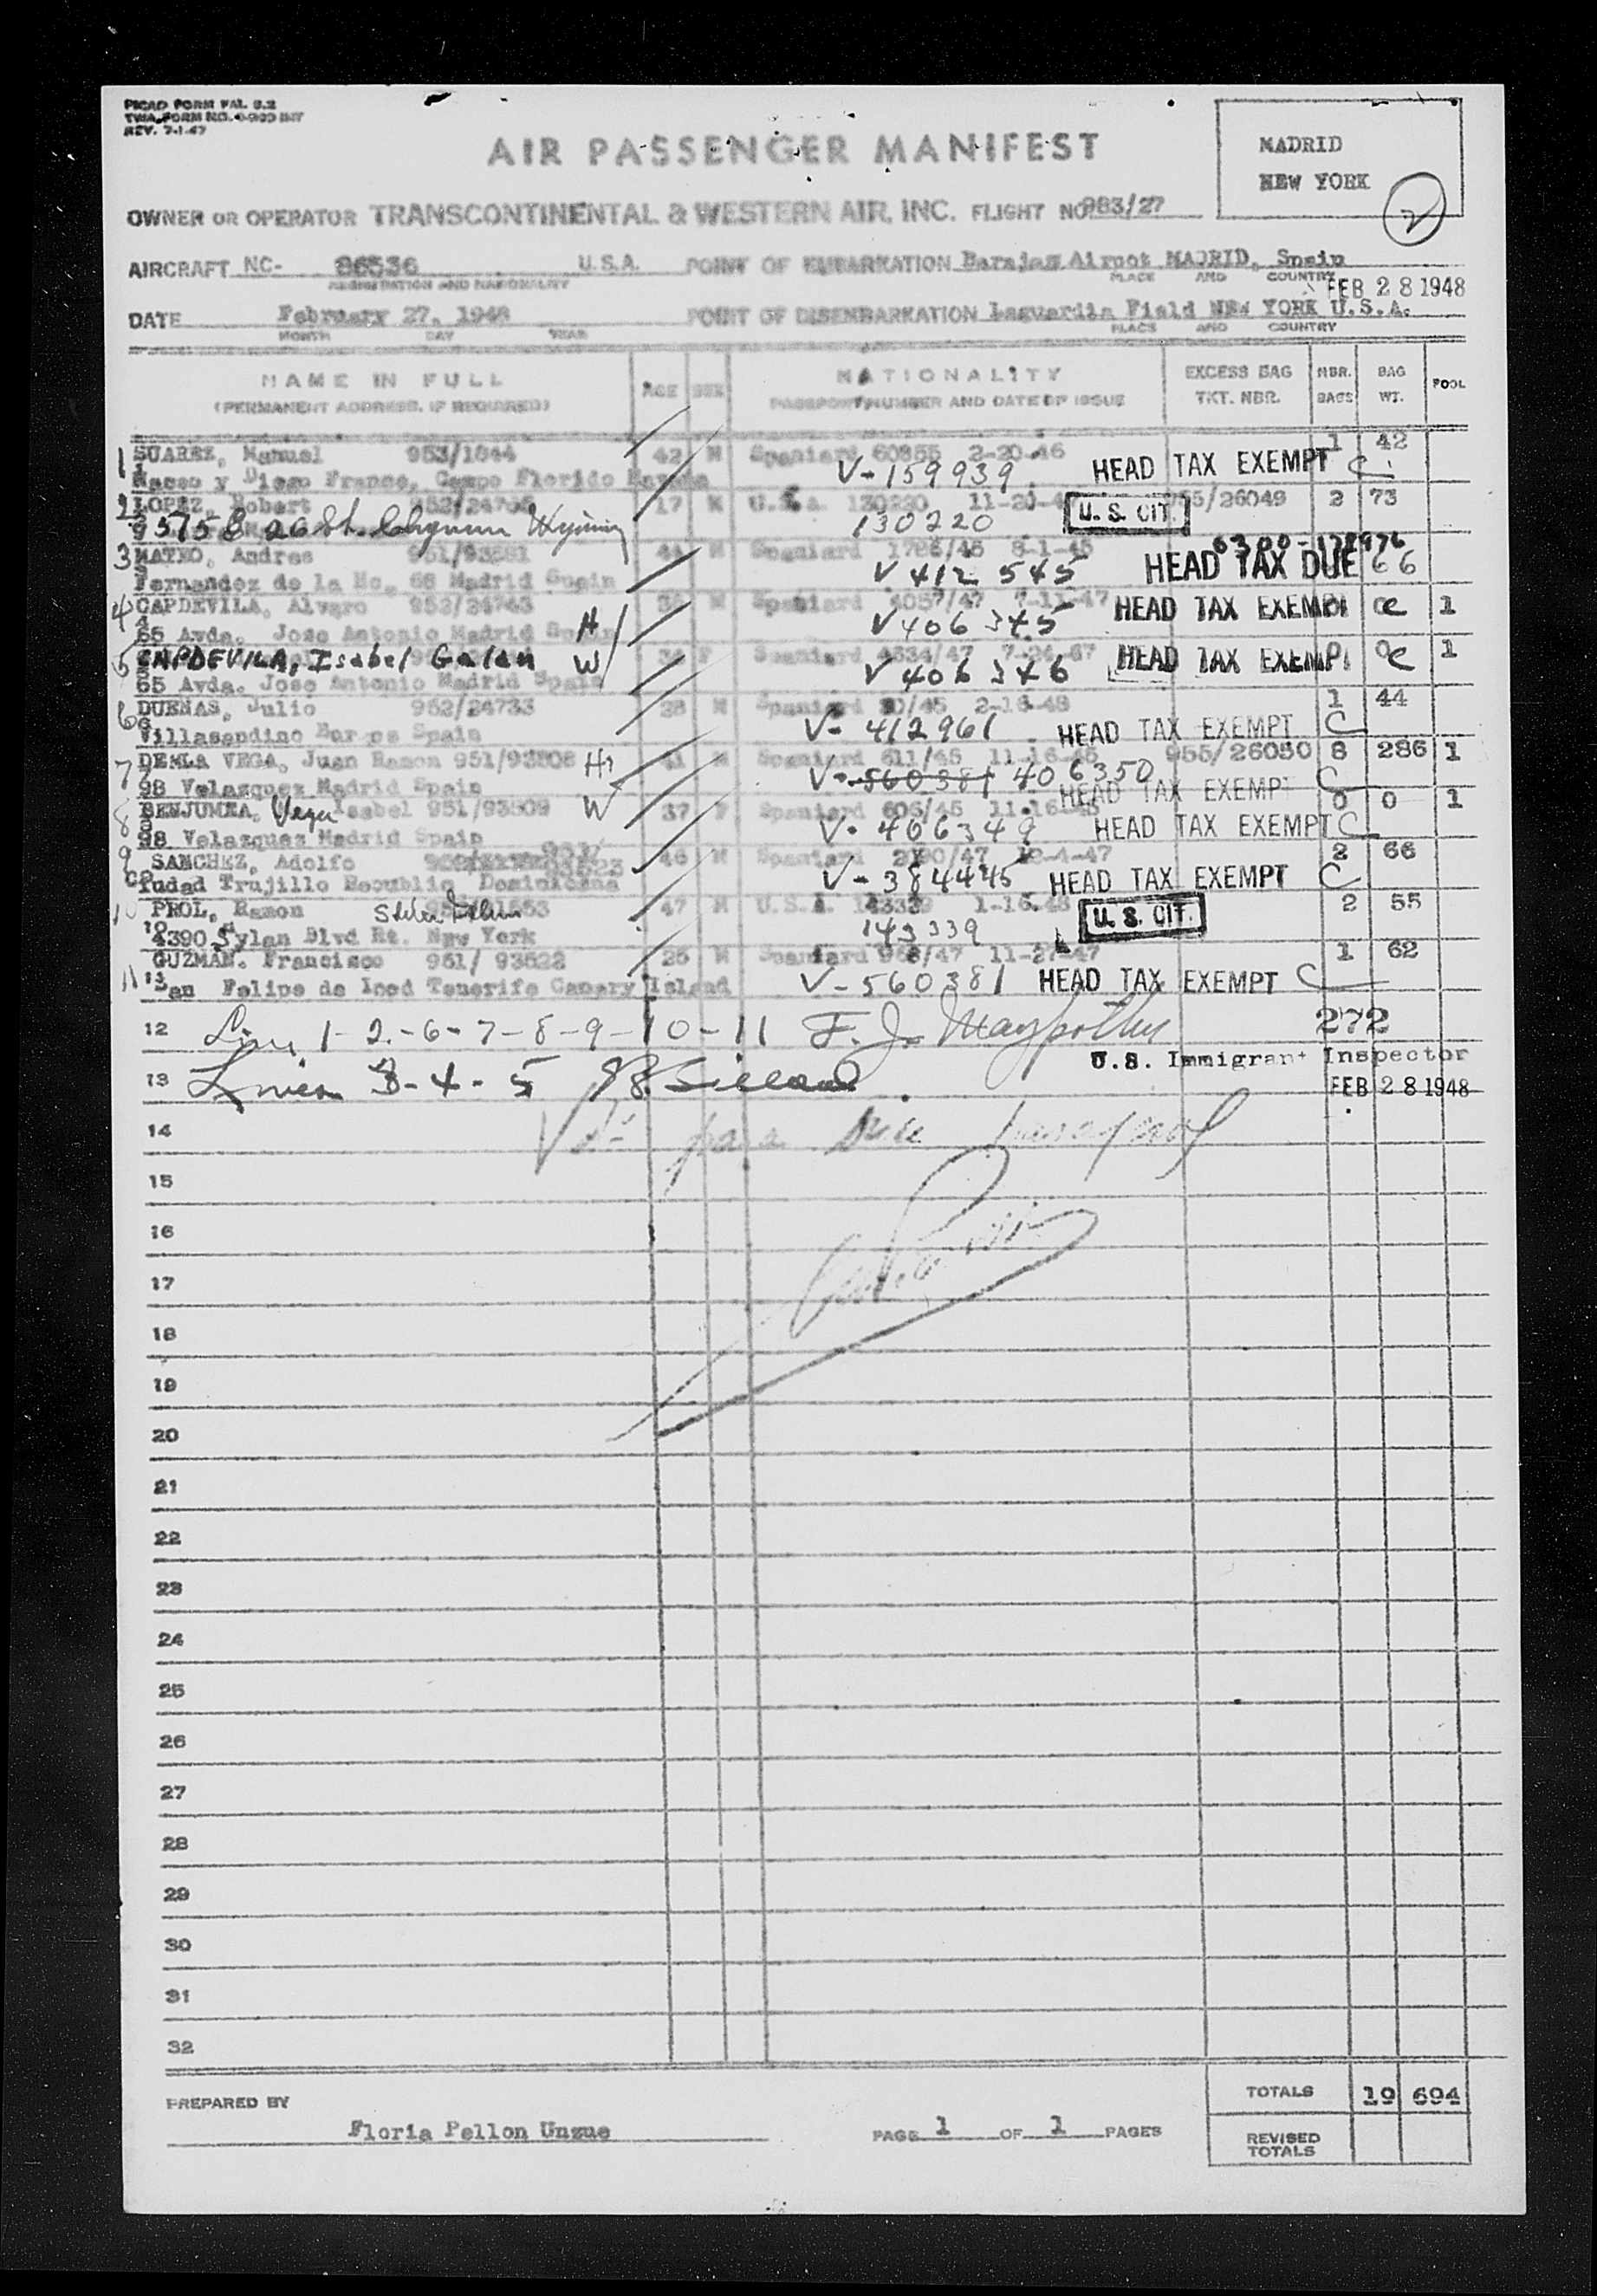 PICAO FORM FAL 9.2
TWA FORM NO.
REV. 7-1-47
AIR PASSENGER MANIFEST
MADRID
NEW YORK
2
OWNER OR OPERATOR TRANSCONTINENTAL & WESTERN AIR, INC. FLIGHT NO 983/27
AIRCRAFT NC- 86536 U.S.A. POINT OF EMBARKATION Barajas Airpot MADRID, Spain
REGISTRATION AND NATIONALITY PLACE AND COUNTRY
FEB 28 1948
DATE February 27, 1948 POINT OF DISEMBARKATION Laguardia Field NEW YORK U.S.A.
MONTH DAY YEAR PLACE AND COUNTRY
NAME IN FULL AGE SEX NATIONALITY EXCESS BAG NBR. BAG POOL
(PERMANENT ADDRESS, IF REQUIRED) PASSPORT NUMBER AND DATE OF ISSUE TKT. NBR. BAGS WT.
1 SUAREZ, Manuel 953/1844 42 M Spaniard 60855 2-20-46 1 42
y Diego Franco, Campo Florido V-159939 HEAD TAX EXEMPT C
2 LOPEZ, Robert 952/24735 17 M U.S.A. 130220 11-20-4 55/26049 2 73
26 St. Wyoming 130220 U. S. CIT.
3 MATEO, Andres 951/93581 44 M Spaniard 1786/45 8-1-45
Fernandez de la Ho, 68 Madrid Spain V 412 545 HEAD TAX DUE 66
4 CAPDEVILA, Alvaro 952/24743 M Spaniard 4057/47 7-11-47 HEAD TAX EXEMPT 1
65 Avda. Jose Antonio Madrid Spain H V 406 345
5 CAPDEVILA, Isabel Galan W F Spaniard 4334/47 HEAD TAX EXEMPT 1
65 Avda. Jose Antonio Madrid Spain V 406 346
6 DUEÑAS, Julio 952/24733 28 M Spaniard 2-16-48 1 44
Villasandino Burgos Spain V- 412961 HEAD TAX EXEMPT C
7 DE LA VEGA, Juan Ramon 951/93508 H 41 M Spaniard 611/45 11-16-45 955/26050 8 286 1
98 Velazquez Madrid Spain V-560381 406350 HEAD TAX EXEMPT C
8 BENJUMEA, Vega Isabel 951/93509 W 37 F Spaniard 606/45 11-16-45 0 0 1
98 Velazquez Madrid Spain V- 406349 HEAD TAX EXEMPT C
9 SANCHEZ, Adolfo 46 M Spaniard 2190/47 12-4-47 2 66
Ciudad Trujillo Republic Dominicana V-384445 HEAD TAX EXEMPT C
10 PROL, Ramon 47 M U.S.A. 143339 1-16-48 2 55
4390 Sylan Blvd Rt. New York 143339 U. S. CIT.
11 GUZMAN. Francisco 951/ 93522 25 M Spaniard 968/47 11-27-47 1 62
San Felipe de Iood Tenerife Canary Island V-560381 HEAD TAX EXEMPT C
12 Line 1-2-6-7-8-9-10-11 F. J. 272
U.S. Immigrant Inspector
13 Lines 3-4-5 FEB 28 1948
14
15
16
17
18
19
20
21
22
23
24
25
26
27
28
29
30
31
32
TOTALS 19 694
PREPARED BY
Floria Pellon Unzue PAGE 1 OF 1 PAGES
REVISED
TOTALS